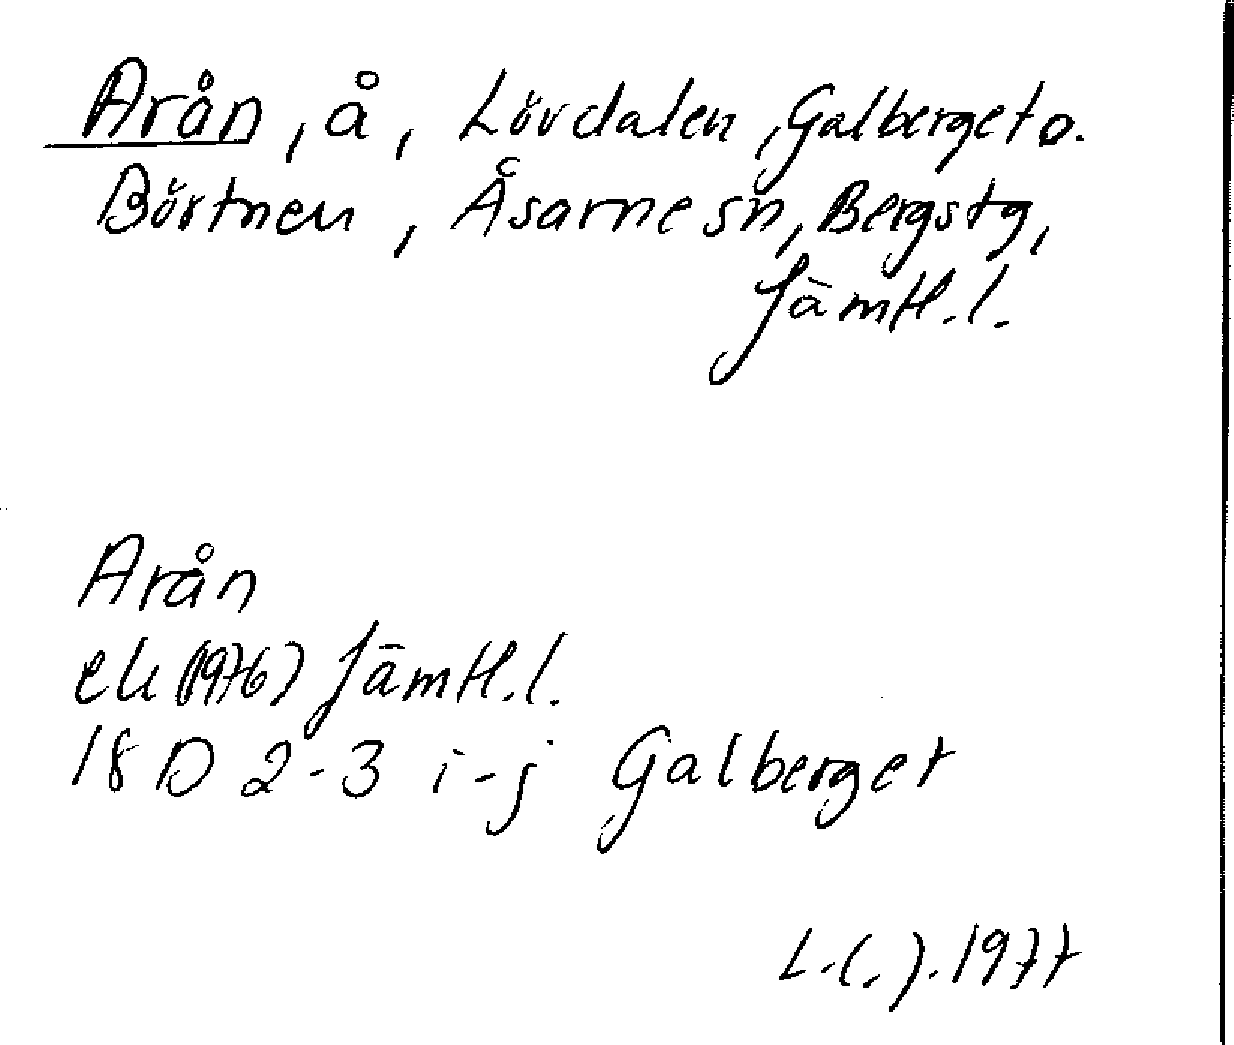 Arån, å, Lövdalen, Galberget o.
Börtnen, Åsarne sn, Bergs tg,
Jämtl. l.
Arån
ek (1976) Jämtl. l.
18 D 2-3 i-j Galberget
L.C.J. 1977